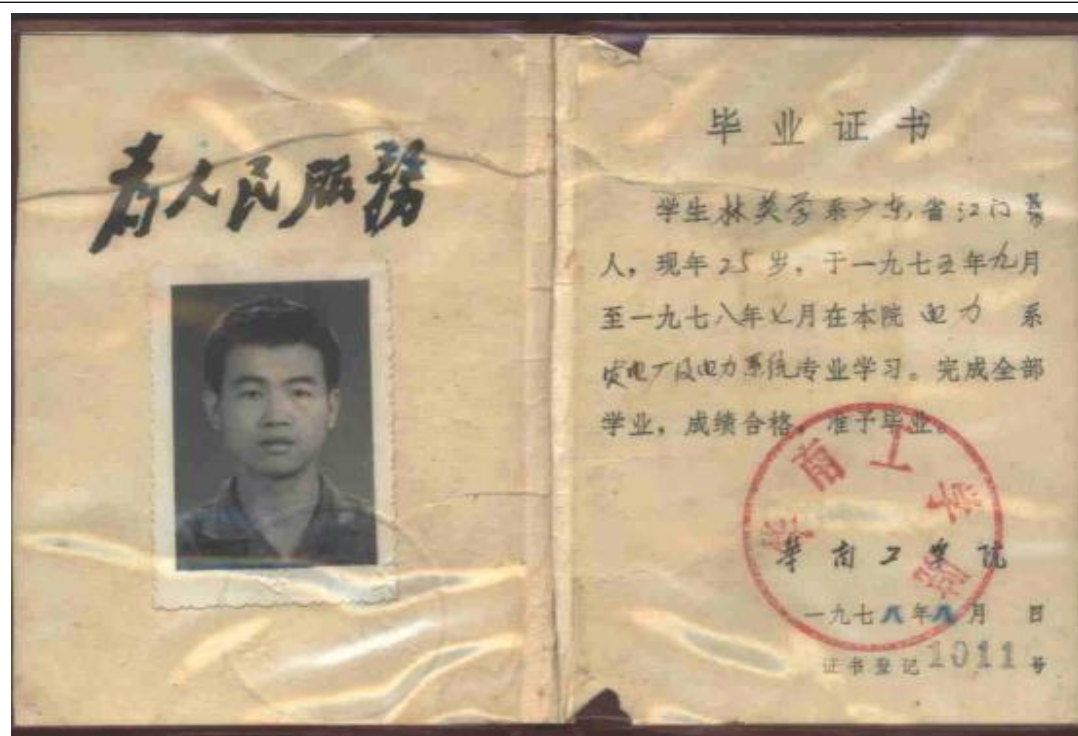 为人民服務
毕业证书
学生林美学系广东省江门县市
人，现年25岁，于一九七五年九月
至一九七八年七月在本院电力系
发电厂及电力系统专业学习。完成全部
学业，成绩合格，准予毕业。
華南工学院
華南工学院
一九七八年八月 日
证书登记1011号